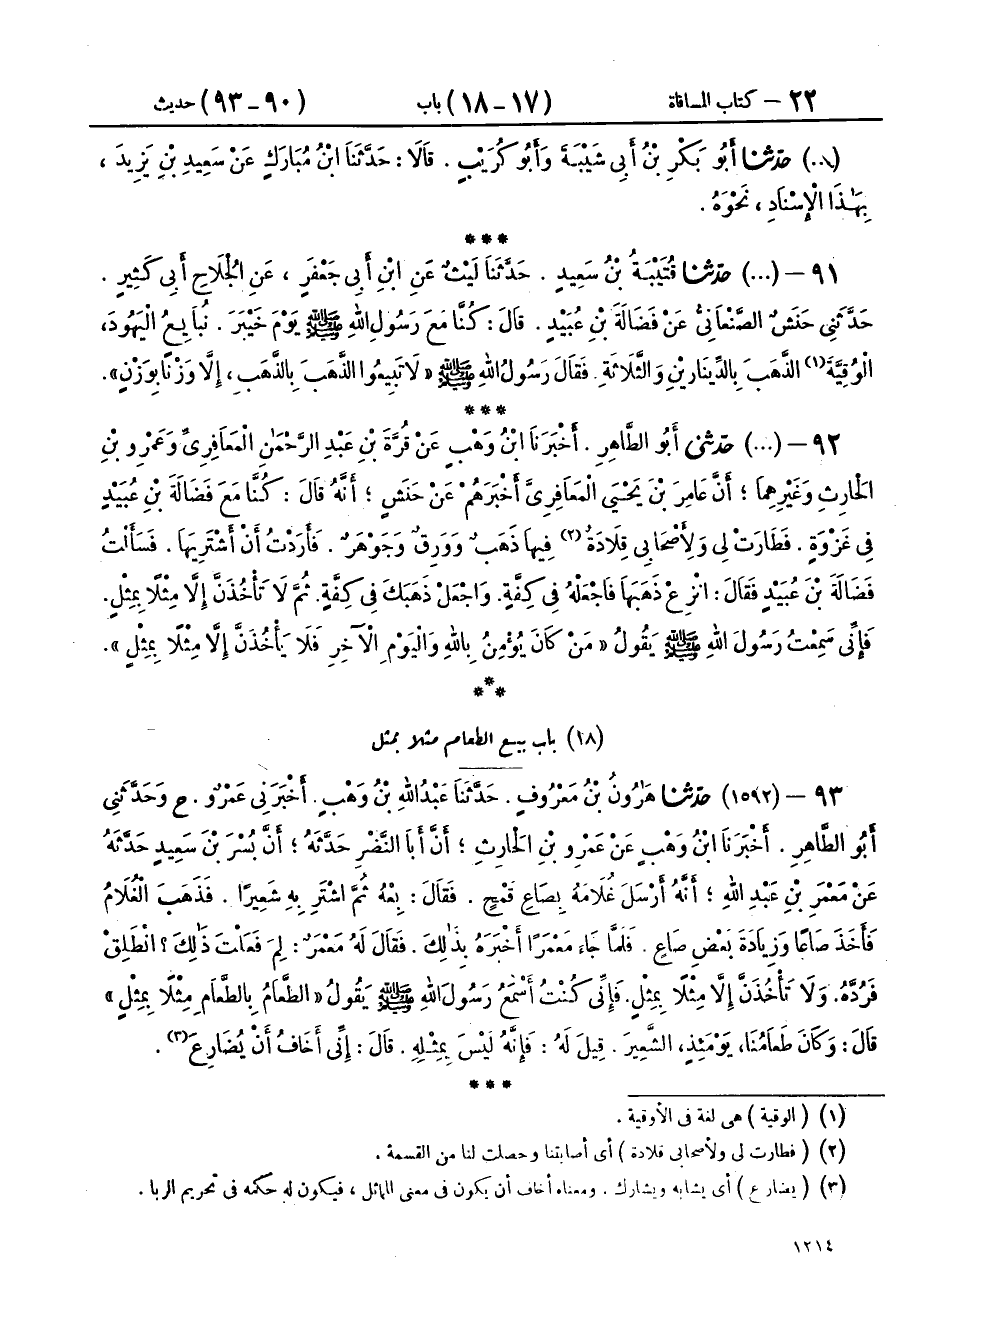 ٢٢ – كتاب المساقاة (١٧ – ١٨) باب (٩٠ – ٩٣) حديث
(...) حدثنا أَبُو بَكْرِ بْنُ أَبِي شَيْبَةَ وَأَبُو كُرَيْبٍ . قَالَا : حَدَّثَنَا ابْنُ مُبَارَكٍ عَنْ سَعِيدِ بْنِ يَزِيدَ ،
بِهَٰذَا الْإِسْنَادِ ، نَحْوَهُ .
***
٩١ – (...) حدثنا قُتَيْبَةُ بْنُ سَعِيدٍ . حَدَّثَنَا لَيْثٌ عَنِ ابْنِ أَبِي جَعْفَرٍ ، عَنِ الْجُلَاحِ أَبِي كَثِيرٍ .
حَدَّثَنِي حَنَشٌ الصَّنْعَانِيُّ عَنْ فَضَالَةَ بْنِ عُبَيْدٍ . قَالَ : كُنَّا مَعَ رَسُولِ اللهِ ﷺ يَوْمَ خَيْبَرَ . نُبَايِعُ الْيَهُودَ،
الْوُقِيَّةَ (١) الذَّهَبَ بِالدِّينَارَيْنِ وَالثَّلَاثَةِ. فَقَالَ رَسُولُ اللهِ ﷺ « لَا تَبِيعُوا الذَّهَبَ بِالذَّهَبِ، إِلَّا وَزْنًا بِوَزْنٍ».
***
٩٢ – (...) حدثني أَبُو الطَّاهِرِ . أَخْبَرَنَا ابْنُ وَهْبٍ عَنْ قُرَّةَ بْنِ عَبْدِ الرَّحْمَٰنِ الْمَعَافِرِيِّ وَعَمْرِو بْنِ
الْحَارِثِ وَغَيْرِهِمَا ؛ أَنَّ عَامِرَ بْنَ يَحْيَى الْمَعَافِرِيَّ أَخْبَرَهُمْ عَنْ حَنَشٍ ؛ أَنَّهُ قَالَ : كُنَّا مَعَ فَضَالَةَ بْنِ عُبَيْدٍ
فِي غَزْوَةٍ . فَطَارَتْ لِي وَلِأَصْحَابِي قِلَادَةٌ (٢) فِيهَا ذَهَبٌ وَوَرِقٌ وَجَوْهَرٌ . فَأَرَدْتُ أَنْ أَشْتَرِيَهَا . فَسَأَلْتُ
فَضَالَةَ بْنَ عُبَيْدٍ فَقَالَ : انْزِعْ ذَهَبَهَا فَاجْعَلْهُ فِي كِفَّةٍ. وَاجْعَلْ ذَهَبَكَ فِي كِفَّةٍ. ثُمَّ لَا تَأْخُذَنَّ إِلَّا مِثْلًا بِمِثْلٍ.
فَإِنِّي سَمِعْتُ رَسُولَ اللهِ ﷺ يَقُولُ « مَنْ كَانَ يُؤْمِنُ بِاللهِ وَالْيَوْمِ الْآخِرِ فَلَا يَأْخُذَنَّ إِلَّا مِثْلًا بِمِثْلٍ » .
***
(١٨) باب بيع الطعام مثلا بمثل
٩٣ – (١٥٩٢) حدثنا هَارُونُ بْنُ مَعْرُوفٍ . حَدَّثَنَا عَبْدُ اللهِ بْنُ وَهْبٍ. أَخْبَرَنِي عَمْرٌو . ح وَحَدَّثَنِي
أَبُو الطَّاهِرِ . أَخْبَرَنَا ابْنُ وَهْبٍ عَنْ عَمْرِو بْنِ الْحَارِثِ ؛ أَنَّ أَبَا النَّضْرِ حَدَّثَهُ ؛ أَنَّ بُسْرَ بْنَ سَعِيدٍ حَدَّثَهُ
عَنْ مَعْمَرِ بْنِ عَبْدِ اللهِ ؛ أَنَّهُ أَرْسَلَ غُلَامَهُ بِصَاعِ قَمْحٍ . فَقَالَ : بِعْهُ ثُمَّ اشْتَرِ بِهِ شَعِيرًا . فَذَهَبَ الْغُلَامُ
فَأَخَذَ صَاعًا وَزِيَادَةَ بَعْضِ صَاعٍ . فَلَمَّا جَاءَ مَعْمَرًا أَخْبَرَهُ بِذَٰلِكَ . فَقَالَ لَهُ مَعْمَرٌ : لِمَ فَعَلْتَ ذَٰلِكَ ؟ انْطَلِقْ
فَرُدَّهُ. وَلَا تَأْخُذَنَّ إِلَّا مِثْلًا بِمِثْلٍ. فَإِنِّي كُنْتُ أَسْمَعُ رَسُولَ اللهِ ﷺ يَقُولُ « الطَّعَامُ بِالطَّعَامِ مِثْلًا بِمِثْلٍ »
قَالَ : وَكَانَ طَعَامُنَا، يَوْمَئِذٍ، الشَّعِيرَ . قِيلَ لَهُ : فَإِنَّهُ لَيْسَ بِمِثْلِهِ . قَالَ : إِنِّي أَخَافُ أَنْ يُضَارِعَ (٣) .
***
(١) ( الوقية ) هى لغة فى الأوقية .
(٢) ( فطارت لى ولأصحابى قلادة ) أى أصابتنا وحصلت لنا من القسمة .
(٣) ( يضارع ) أى يشابه ويشارك . ومعناه أخاف أن يكون فى معنى المماثل ، فيكون له حكمه فى تحريم الربا .
١٢١٤